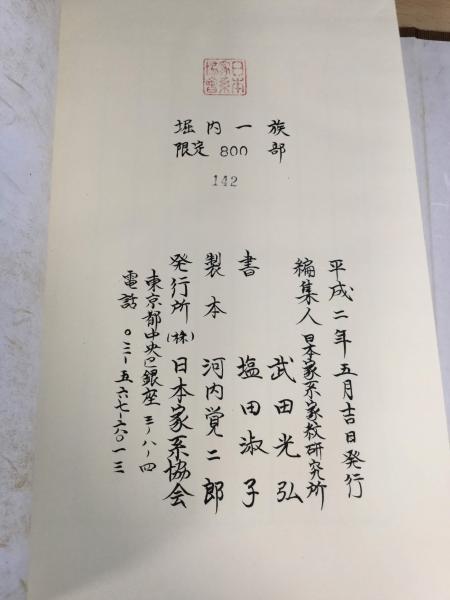 日本家系協会
堀内一族
限定800部
142
平成二年五月吉日発行
編集人 日本家系家紋研究所
武田光弘
書 塩田淑子
製本 河内覚二郎
発行所 (株)日本家系協会
東京都中央区銀座三ノ八ノ四
電話 〇三ー五六七ー六〇一三